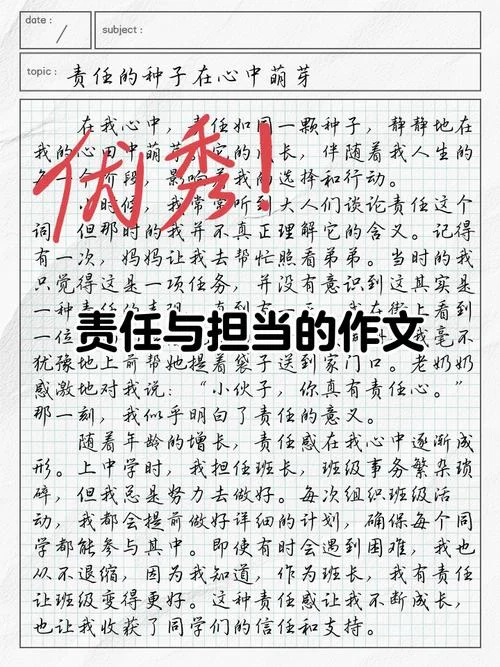 date :
subject :
topic : 责任的种子在心中萌芽
在我心中，责任如同一颗种子，静静地在
我的心田中萌芽，它的成长，伴随着我人生的
每一个阶段，影响着我的选择和行动。
优秀！
小时候，我常常听到大人们谈论责任这个
词，但那时的我并不真正理解它的含义。记得
有一次，妈妈让我去帮忙照看弟弟。当时的我
只觉得这是一项任务，并没有意识到这其实是
一种责任的
上看到
一位
我毫不
责任与担当的作文
犹豫地上前帮她提着袋子送到家门口。老奶奶
感激地对我说：“小伙子，你真有责任心。”
那一刻，我似乎明白了责任的意义。
随着年龄的增长，责任感在我心中逐渐成
形。上中学时，我担任班长，班级事务繁杂琐
碎，但我总是努力去做好。每次组织班级活
动，我都会提前做好详细的计划，确保每个同
学都能参与其中。即使有时会遇到困难，我也
从不退缩，因为我知道，作为班长，我有责任
让班级变得更好。这种责任感让我不断成长，
也让我收获了同学们的信任和支持。